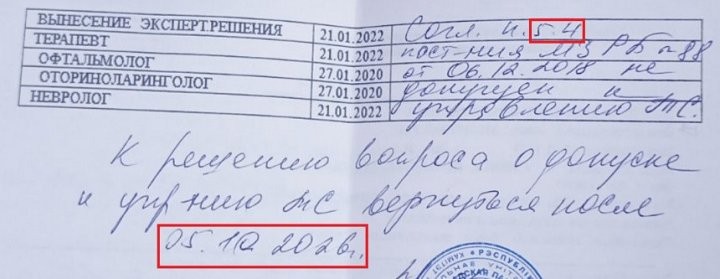 ВЫНЕСЕНИЕ ЭКСПЕРТ.РЕШЕНИЯ 21.01.2022 Согл. п. 5.4
ТЕРАПЕВТ 21.01.2022 пост-ния МЗ РБ №88
ОФТАЛЬМОЛОГ 27.01.2020 от 06.12.2018 не
ОТОРИНОЛАРИНГОЛОГ 27.01.2020 допущен к
НЕВРОЛОГ 21.01.2022 управлению ТС.
К решению вопроса о допуске
к упр-нию ТС вернуться после
05.10.2026г.
РЭСПУБЛІ